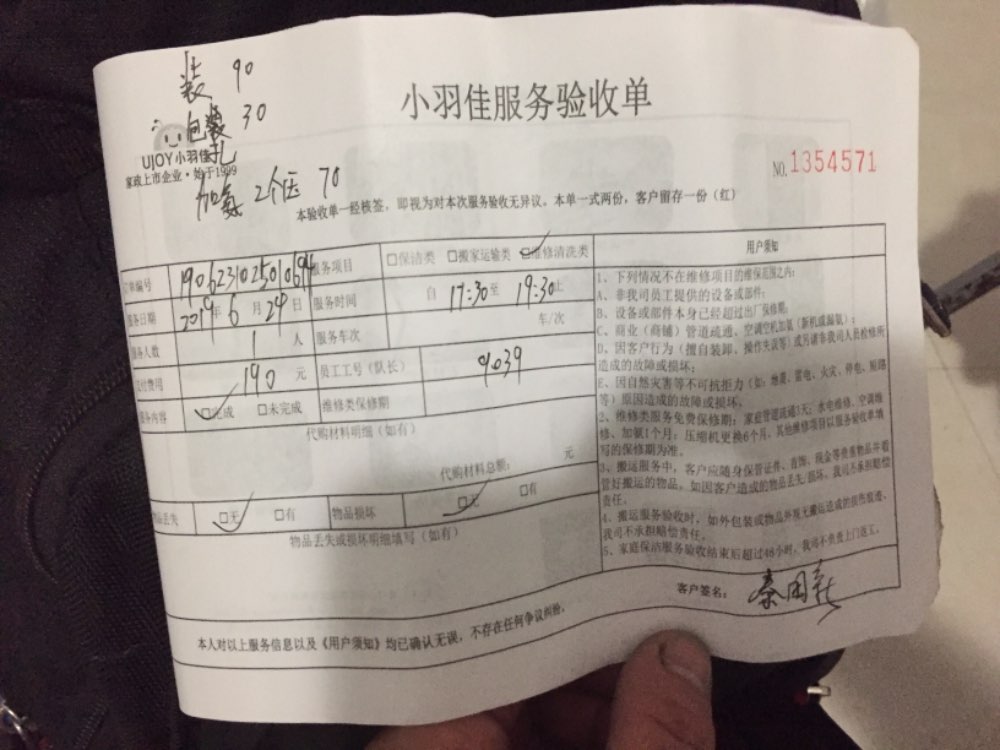 装 90
包装 30
孔
加氟 2个压 70
UJOY小羽佳
家政上市企业·始于1999
小羽佳服务验收单
NO.1354571
本验收单一经核签，即视为对本次服务验收无异议。本单一式两份，客户留存一份（红）
订单编号 服务项目 □保洁类 □搬家运输类 □维修清洗类
服务日期 2019年 6 月 24 日 服务时间 自 17:30 至 19:30 止
服务人数 1 人 服务车次 车/次
支付费用 190 元 员工工号（队长） 9039
服务内容 □完成 □未完成 维修类保修期
代购材料明细（如有）
代购材料总额： 元
物品丢失 □无 □有 物品损坏 □无 □有
物品丢失或损坏明细填写（如有）
用户须知
1、下列情况不在维修项目的维保范围之内：
A、非我司员工提供的设备或部件；
B、设备或部件本身已经超过出厂保修期；
C、商业（商铺）管道疏通、空调空机加氟（新机或漏氟）；
D、因客户行为（擅自装卸、操作失误等）或另请非我司人员检修所
造成的故障或损坏；
E、因自然灾害等不可抗拒力（如：地震、雷电、火灾、停电、短路
等）原因造成的故障或损坏。
2、维修类服务免费保修期：家庭管道疏通3天；水电维修、空调维
修、加氟1个月；压缩机更换6个月，其他维修项目以服务验收单填
写的保修期为准。
3、搬运服务中，客户应随身保管证件、首饰、现金等贵重物品并看
管好搬运的物品，如因客户造成的物品丢失/损坏，我司不承担赔偿
责任。
4、搬运服务验收时，如外包装或物品外观无搬运造成的损伤痕迹，
我司不承担赔偿责任。
5、家庭保洁服务验收结束后超过48小时，我司不负责上门返工。
客户签名：
本人对以上服务信息以及《用户须知》均已确认无误，不存在任何争议纠纷。